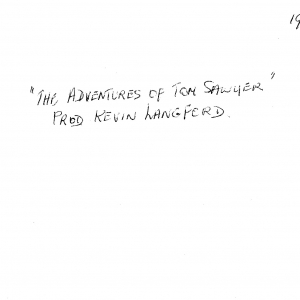 19
"THE ADVENTURES OF TOM SAWYER"
PROD KEVIN LANGFORD.